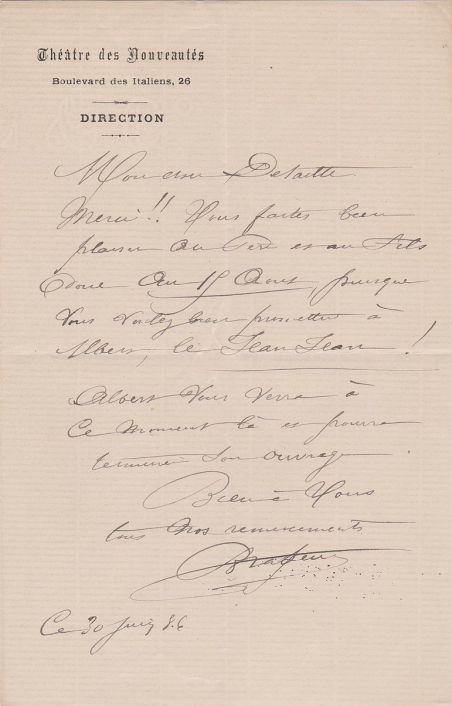 Théâtre des Nouveautés
Boulevard des Italiens, 26
DIRECTION
Monsieur Detaille
Merci !! Vous faites bien
plaisir au Père et au fils
Donc au 15 Août, puisque
vous voulez bien promettre à
Albert, le JeanJean !
Albert vous verra à
ce moment là et pourra
terminer son ouvrage
Bien à vous
tous nos remerciements
Brasseur
Ce 30 Juin 86